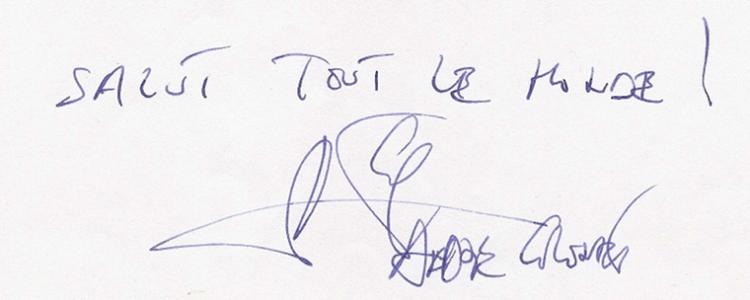 SALUT TOUT LE MONDE !